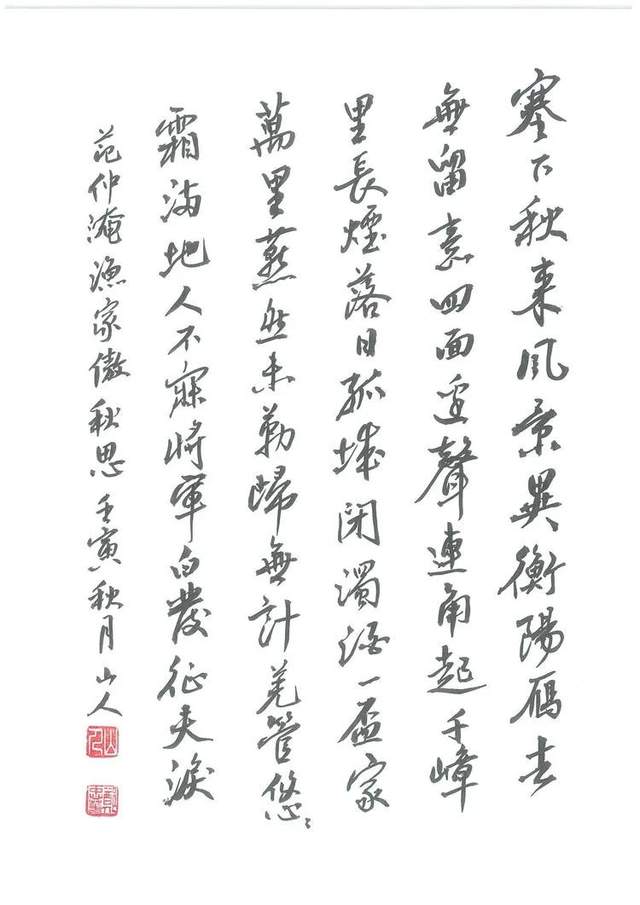 塞下秋来風景異衡陽鴈去
無留意四面邊聲連角起千嶂
里長煙落日孤城閉濁酒一盃家
萬里燕然未勒歸無計羌管悠〻
霜滿地人不寐將軍白發征夫淚
范仲淹漁家傲秋思壬寅秋月山人